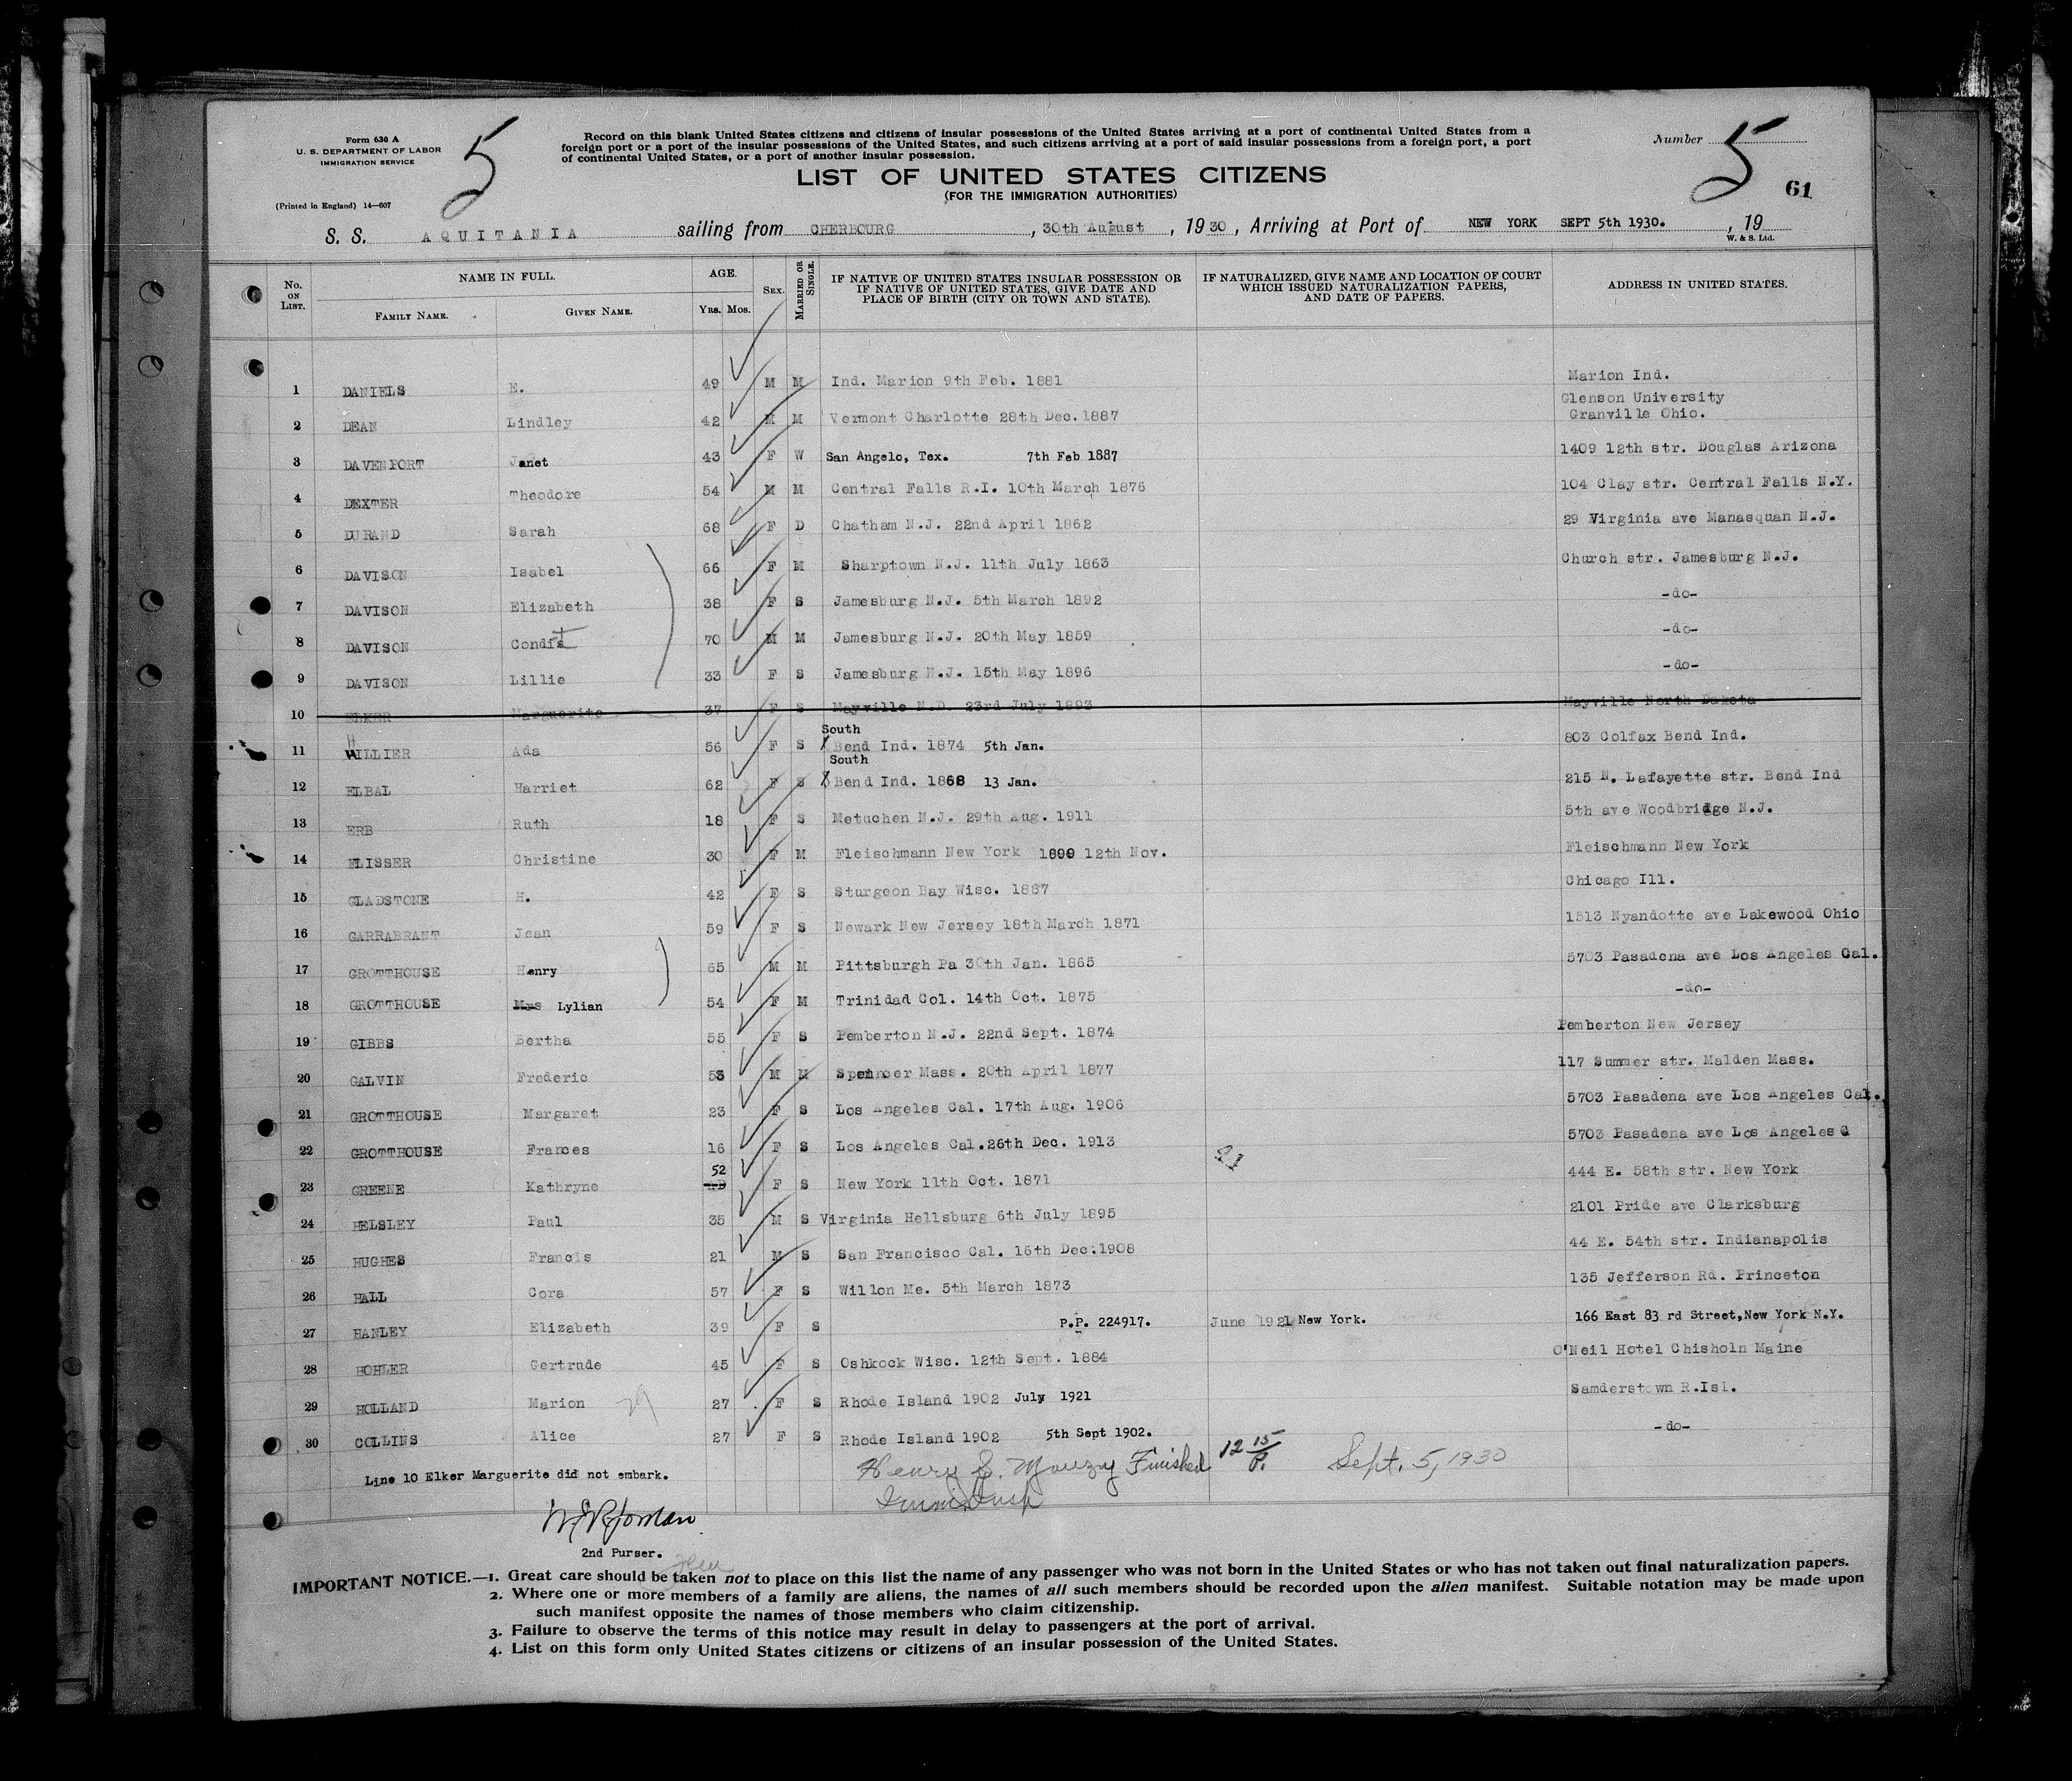 Form 630 A
U. S. DEPARTMENT OF LABOR
IMMIGRATION SERVICE
(Printed in England) 14—607
5
Record on this blank United States citizens and citizens of insular possessions of the United States arriving at a port of continental United States from a
foreign port or a port of the insular possessions of the United States, and such citizens arriving at a port of said insular possessions from a foreign port, a port
of continental United States, or a port of another insular possession.
Number 5
61
LIST OF UNITED STATES CITIZENS
(FOR THE IMMIGRATION AUTHORITIES)
S. S. AQUITANIA sailing from CHERBOURG, 30th August, 1930, Arriving at Port of NEW YORK SEPT 5th 1930., 19
W. & S. Ltd.
No. ON LIST. NAME IN FULL. FAMILY NAME. GIVEN NAME. AGE. YRS. MOS. SEX. MARRIED OR SINGLE. IF NATIVE OF UNITED STATES INSULAR POSSESSION OR IF NATIVE OF UNITED STATES, GIVE DATE AND PLACE OF BIRTH (CITY OR TOWN AND STATE). IF NATURALIZED, GIVE NAME AND LOCATION OF COURT WHICH ISSUED NATURALIZATION PAPERS, AND DATE OF PAPERS. ADDRESS IN UNITED STATES.
1 DANIELS E. 49 M M Ind. Marion 9th Feb. 1881 Marion Ind.
2 DEAN Lindley 42 M M Vermont Charlotte 28th Dec. 1887 Clenson University Granville Ohio.
3 DAVENPORT Janet 43 F W San Angelo, Tex. 7th Feb 1887 1409 12th str. Douglas Arizona
4 DEXTER Theodore 54 M M Central Falls R.I. 10th March 1876 104 Clay str. Central Falls N.Y.
5 DURAND Sarah 68 F D Chatham N.J. 22nd April 1862 29 Virginia ave Manasquan N.J.
6 DAVISON Isabel 66 F M Sharptown N.J. 11th July 1863 Church str. Jamesburg N.J.
7 DAVISON Elizabeth 38 F S Jamesburg N.J. 5th March 1892 -do-
8 DAVISON Condit 70 M M Jamesburg N.J. 20th May 1859 -do-
9 DAVISON Lillie 33 F S Jamesburg N.J. 15th May 1896 -do-
10 ELKER Marguerite 37 F S Mayville N.D. 23rd July 1893 Mayville North Dakota
11 HILLIER Ada 56 F S South Bend Ind. 1874 5th Jan. 803 Colfax Bend Ind.
12 ELBAL Harriet 62 F S South Bend Ind. 1868 13 Jan. 215 N. Lafayette str. Bend Ind
13 ERB Ruth 18 F S Metuchen N.J. 29th Aug. 1911 5th ave Woodbridge N.J.
14 ELISSER Christine 30 F M Fleischmann New York 1899 12th Nov. Fleischmann New York
15 GLADSTONE H. 42 F S Sturgeon Bay Wisc. 1887 Chicago Ill.
16 GARRABRANT Jean 59 F S Newark New Jersey 18th March 1871 1513 Nyandotte ave Lakewood Ohio
17 GROTTHOUSE Henry 65 M M Pittsburgh Pa 30th Jan. 1865 5703 Pasadena ave Los Angeles Cal.
18 GROTTHOUSE Mrs Lylian 54 F M Trinidad Col. 14th Oct. 1875 -do-
19 GIBBS Bertha 55 F S Pemberton N.J. 22nd Sept. 1874 Pemberton New Jersey
20 GALVIN Frederic 53 M M Spencer Mass. 20th April 1877 117 Summer str. Malden Mass.
21 GROTTHOUSE Margaret 23 F S Los Angeles Cal. 17th Aug. 1906 5703 Pasadena ave Los Angeles Cal.
22 GROTTHOUSE Frances 16 F S Los Angeles Cal. 26th Dec. 1913 5703 Pasadena ave Los Angeles C
23 GREENE Kathryne 52 F S New York 11th Oct. 1871 444 E. 58th str. New York
24 HELSLEY Paul 35 M S Virginia Hellsburg 6th July 1895 2101 Pride ave Clarksburg
25 HUGHES Francis 21 M S San Francisco Cal. 16th Dec. 1908 44 E. 54th str. Indianapolis
26 HALL Cora 57 F S Willon Me. 5th March 1873 135 Jefferson Rd. Princeton
27 HANLEY Elizabeth 39 F S P.P. 224917. June 1921 New York. 166 East 83 rd Street, New York N.Y.
28 HOHLER Gertrude 45 F S Oshkock Wisc. 12th Sept. 1884 O'Neil Hotel Chisholn Maine
29 HOLLAND Marion 27 F S Rhode Island 1902 July 1921 Samderstown R.Isl.
30 COLLINS Alice 27 F S Rhode Island 1902 5th Sept 1902. -do-
Line 10 Elker Marguerite did not embark.
Henry S. Finished 12 15/P. Sept. 5, 1930
Immi. Insp
2nd Purser.
IMPORTANT NOTICE.—1. Great care should be taken not to place on this list the name of any passenger who was not born in the United States or who has not taken out final naturalization papers.
2. Where one or more members of a family are aliens, the names of all such members should be recorded upon the alien manifest. Suitable notation may be made upon
such manifest opposite the names of those members who claim citizenship.
3. Failure to observe the terms of this notice may result in delay to passengers at the port of arrival.
4. List on this form only United States citizens or citizens of an insular possession of the United States.